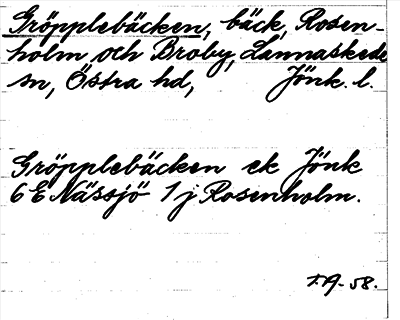 Gröpplebäcken, bäck, Rosen-
holm och Broby, Lannaskede
sn, Östra hd, Jönk. l.
Gröpplebäcken ek Jönk
6 E Nässjö 1 j Rosenholm.
T.A-58.